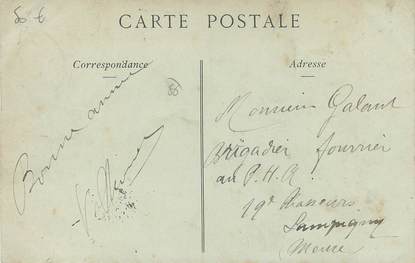 50 €
CARTE POSTALE
Correspondance
Adresse
55
Bonne année
Monsieur Galant
Brigadier fourrier
au P.H.R.
19e Chasseurs
Sampigny
Meuse